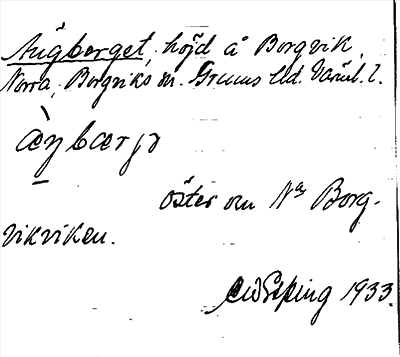 Ängberget, höjd å Borgvik
Norra, Borgviks sn. Grums hd. Värml. l.
æ̀ŋbærjə
öster om Na Borg-
vikviken.
1933.